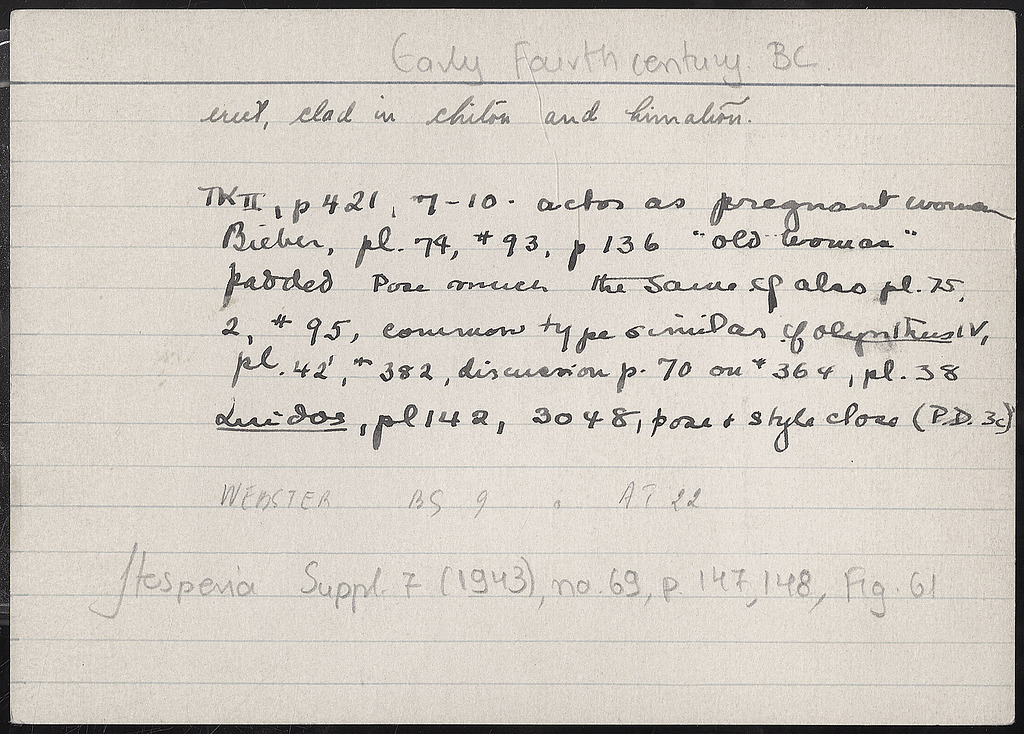 Early Fourth century. BC.
erect, clad in chiton and himation.
TK II, p 421, 7-10. actor as pregnant woman
Bieber, pl. 74, #93, p 136 "old woman"
padded Pose much the same cf also pl. 75,
2, # 95, common type similar cf Olynthus IV,
pl. 42, # 382, discussion p. 70 on # 364, pl. 38
Lindos, pl 142, 3048, pose + style close (P.D. 3c)
WEBSTER BS 9 AT 22
Hesperia Suppl. 7 (1943), no. 69, p. 147, 148, Fig. 61